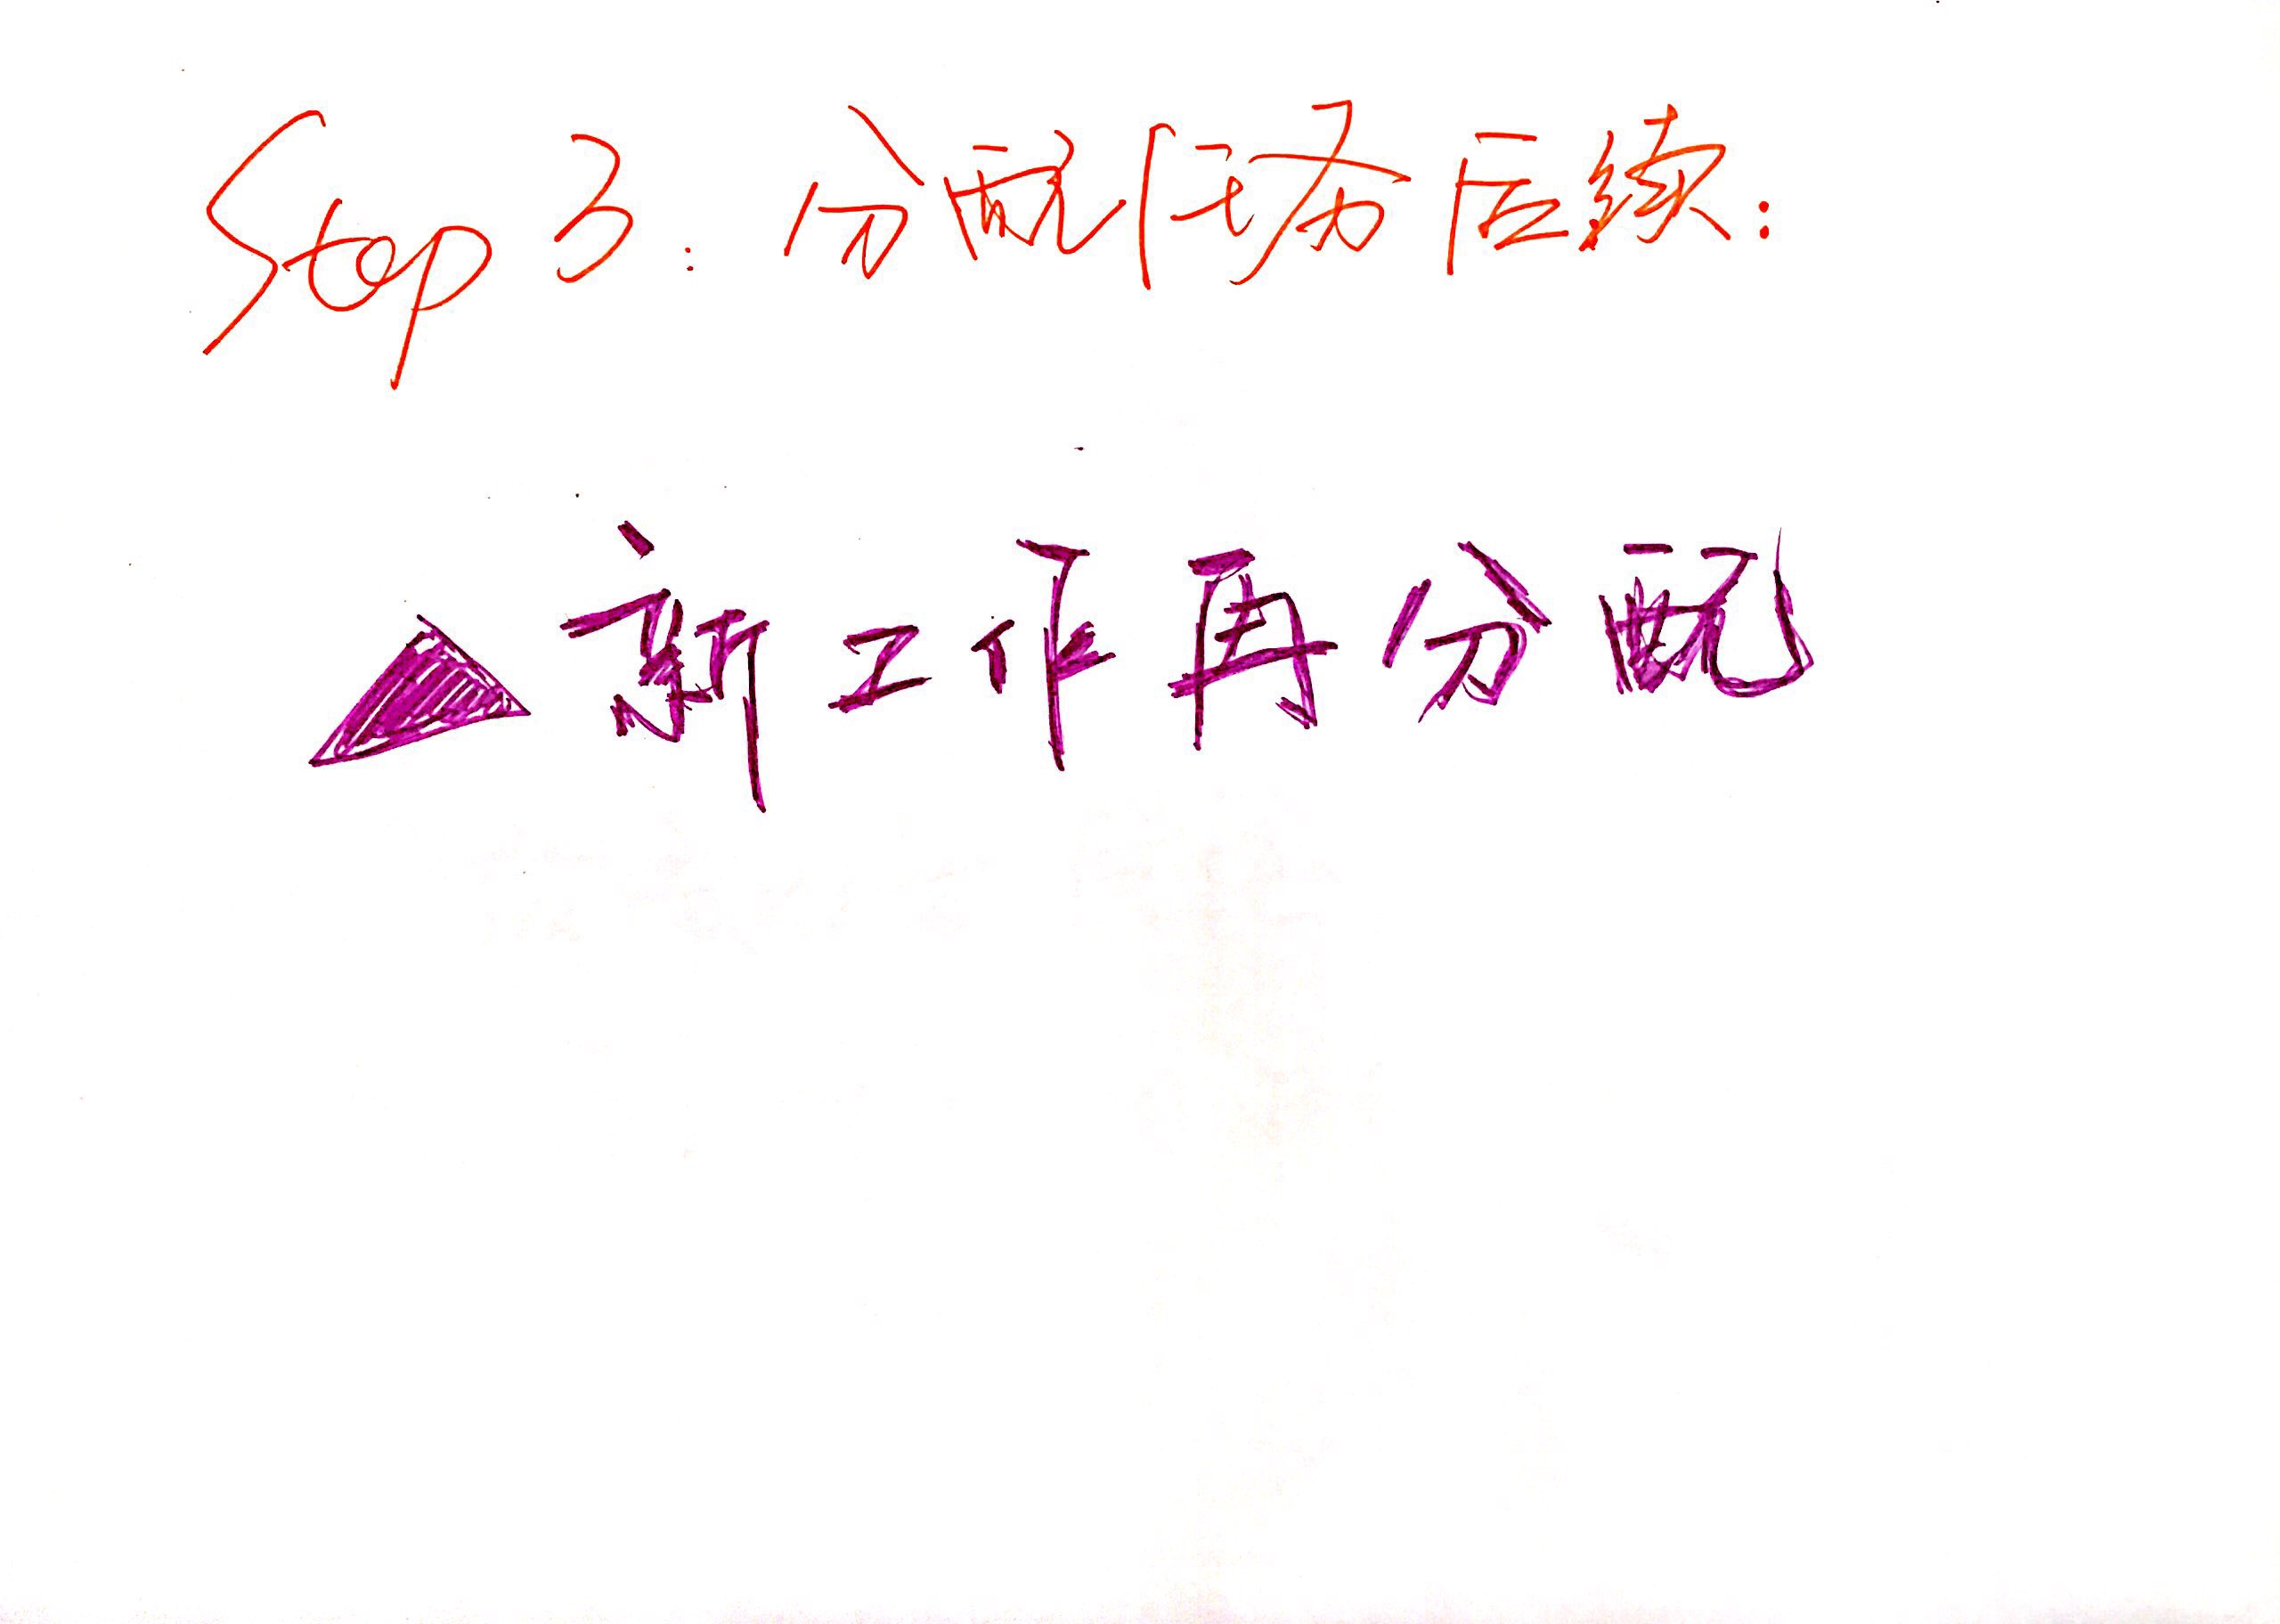 Step 3: 分配任务后续:
▲新工作再分配